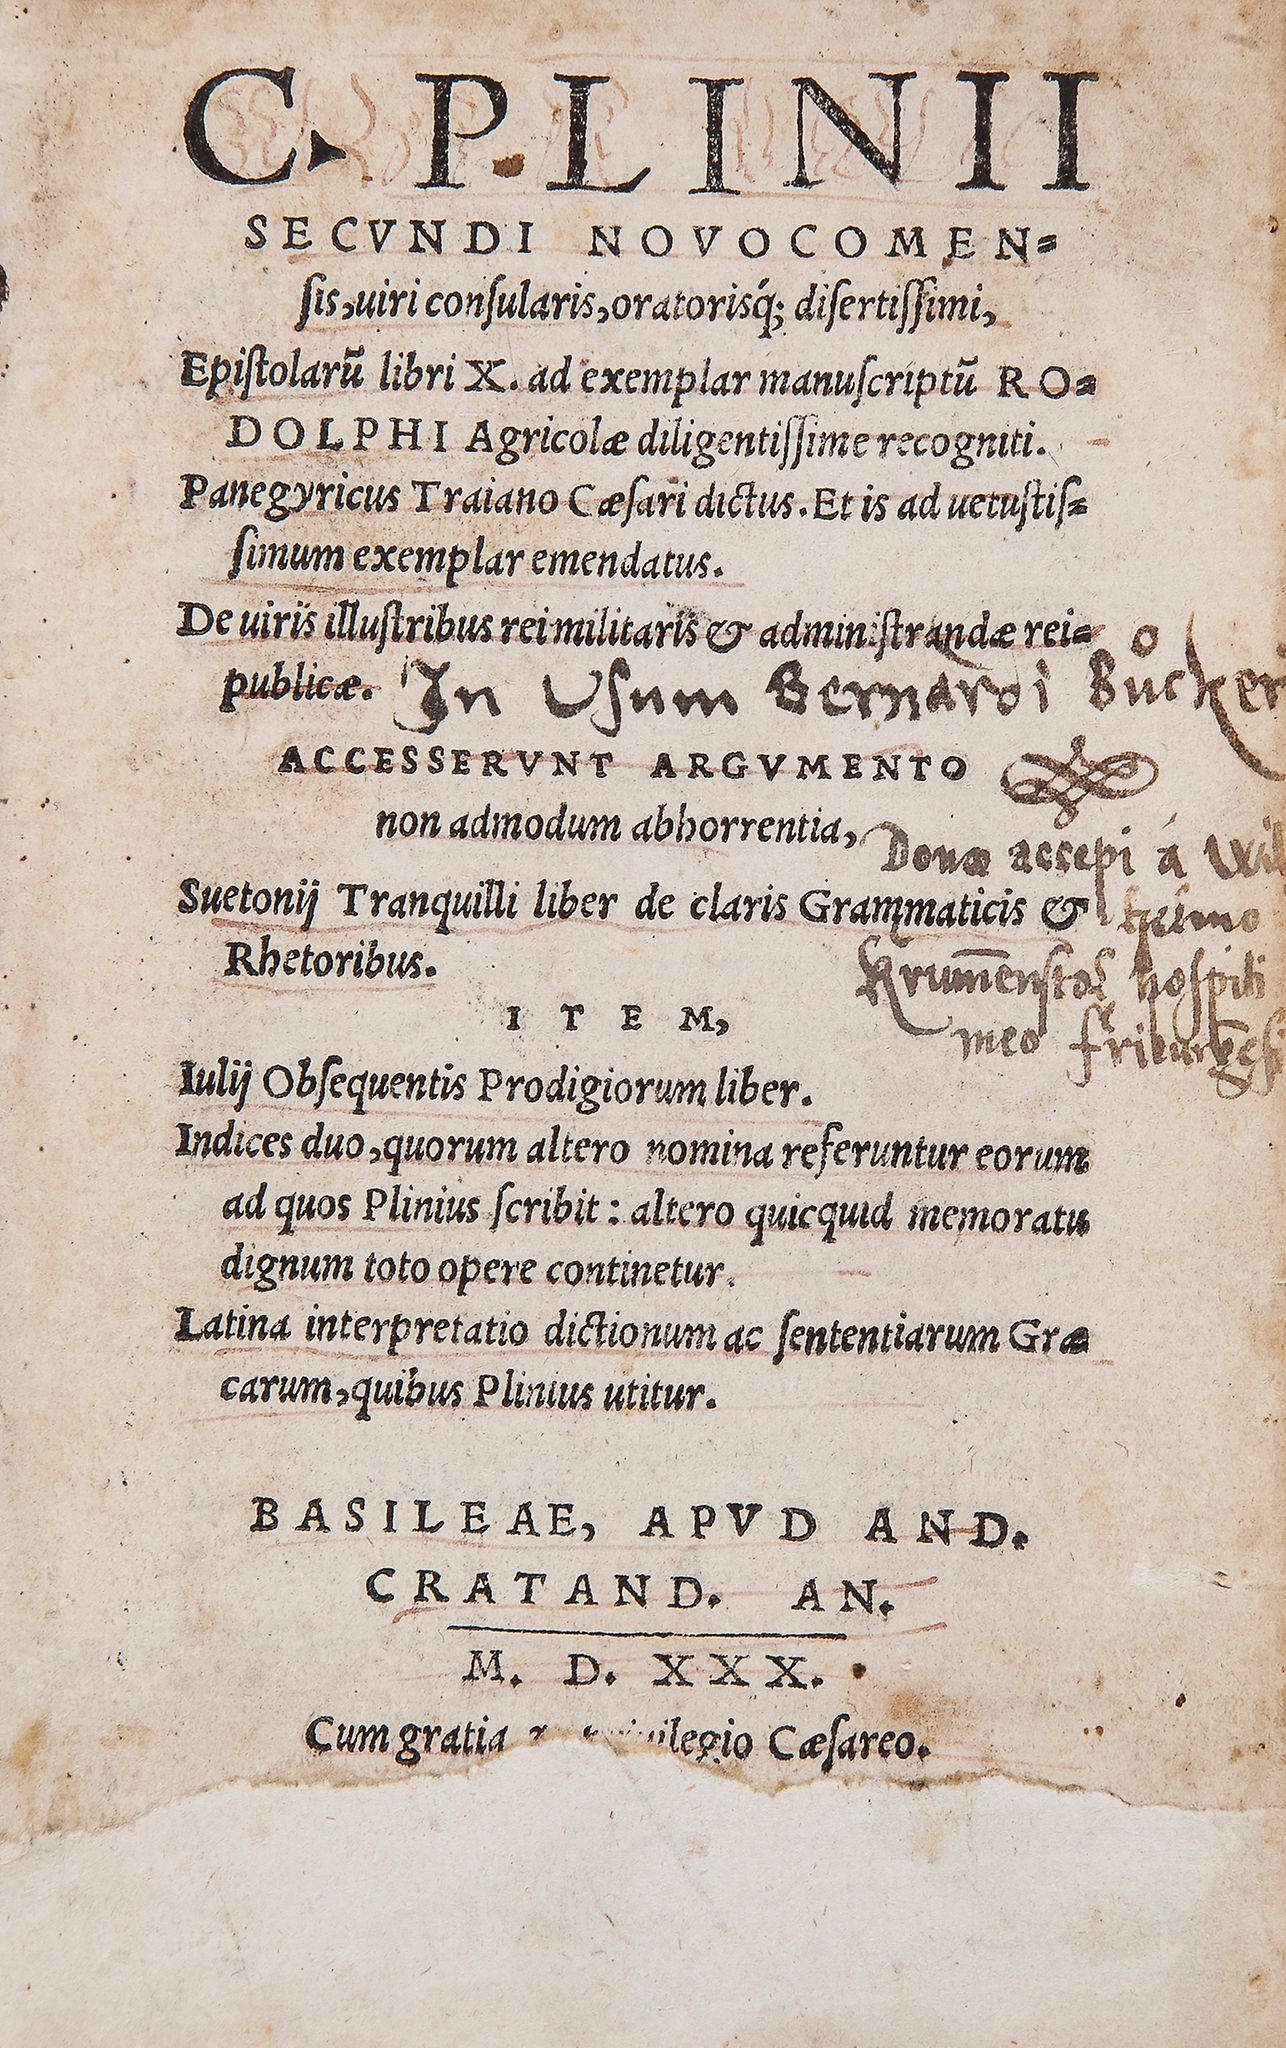 C. PLINII
SECVNDI NOVOCOMEN=
ſis, uiri conſularis, oratorisq́; diſertiſſimi,
Epiſtolarũ libri X. ad exemplar manuſcriptũ RO=
DOLPHI Agricolæ diligentiſſime recogniti.
Panegyricus Traiano Cæſari dictus. Et is ad uetuſtiſ=
ſimum exemplar emendatus.
De uirijs illuſtribus rei militaris & adminiſtrandæ rei=
publicæ.
In Uſum Bernardi Bůckeri
ACCESSERVNT ARGVMENTO
non admodum abhorrentia,
Dono accepi á
Suetonij Tranquilli liber de claris Grammaticis &
Rhetoribus.
hospiti
meo
ITEM,
Iulij Obſequentis Prodigiorum liber.
Indices duo, quorum altero nomina referuntur eorum
ad quos Plinius ſcribit: altero quicquid memoratu
dignum toto opere continetur.
Latina interpretatio dictionum ac ſententiarum Græ
carum, quibus Plinius utitur.
BASILEAE, APVD AND.
CRATAND. AN.
M. D. XXX.
Cum gratia Cæſareo.